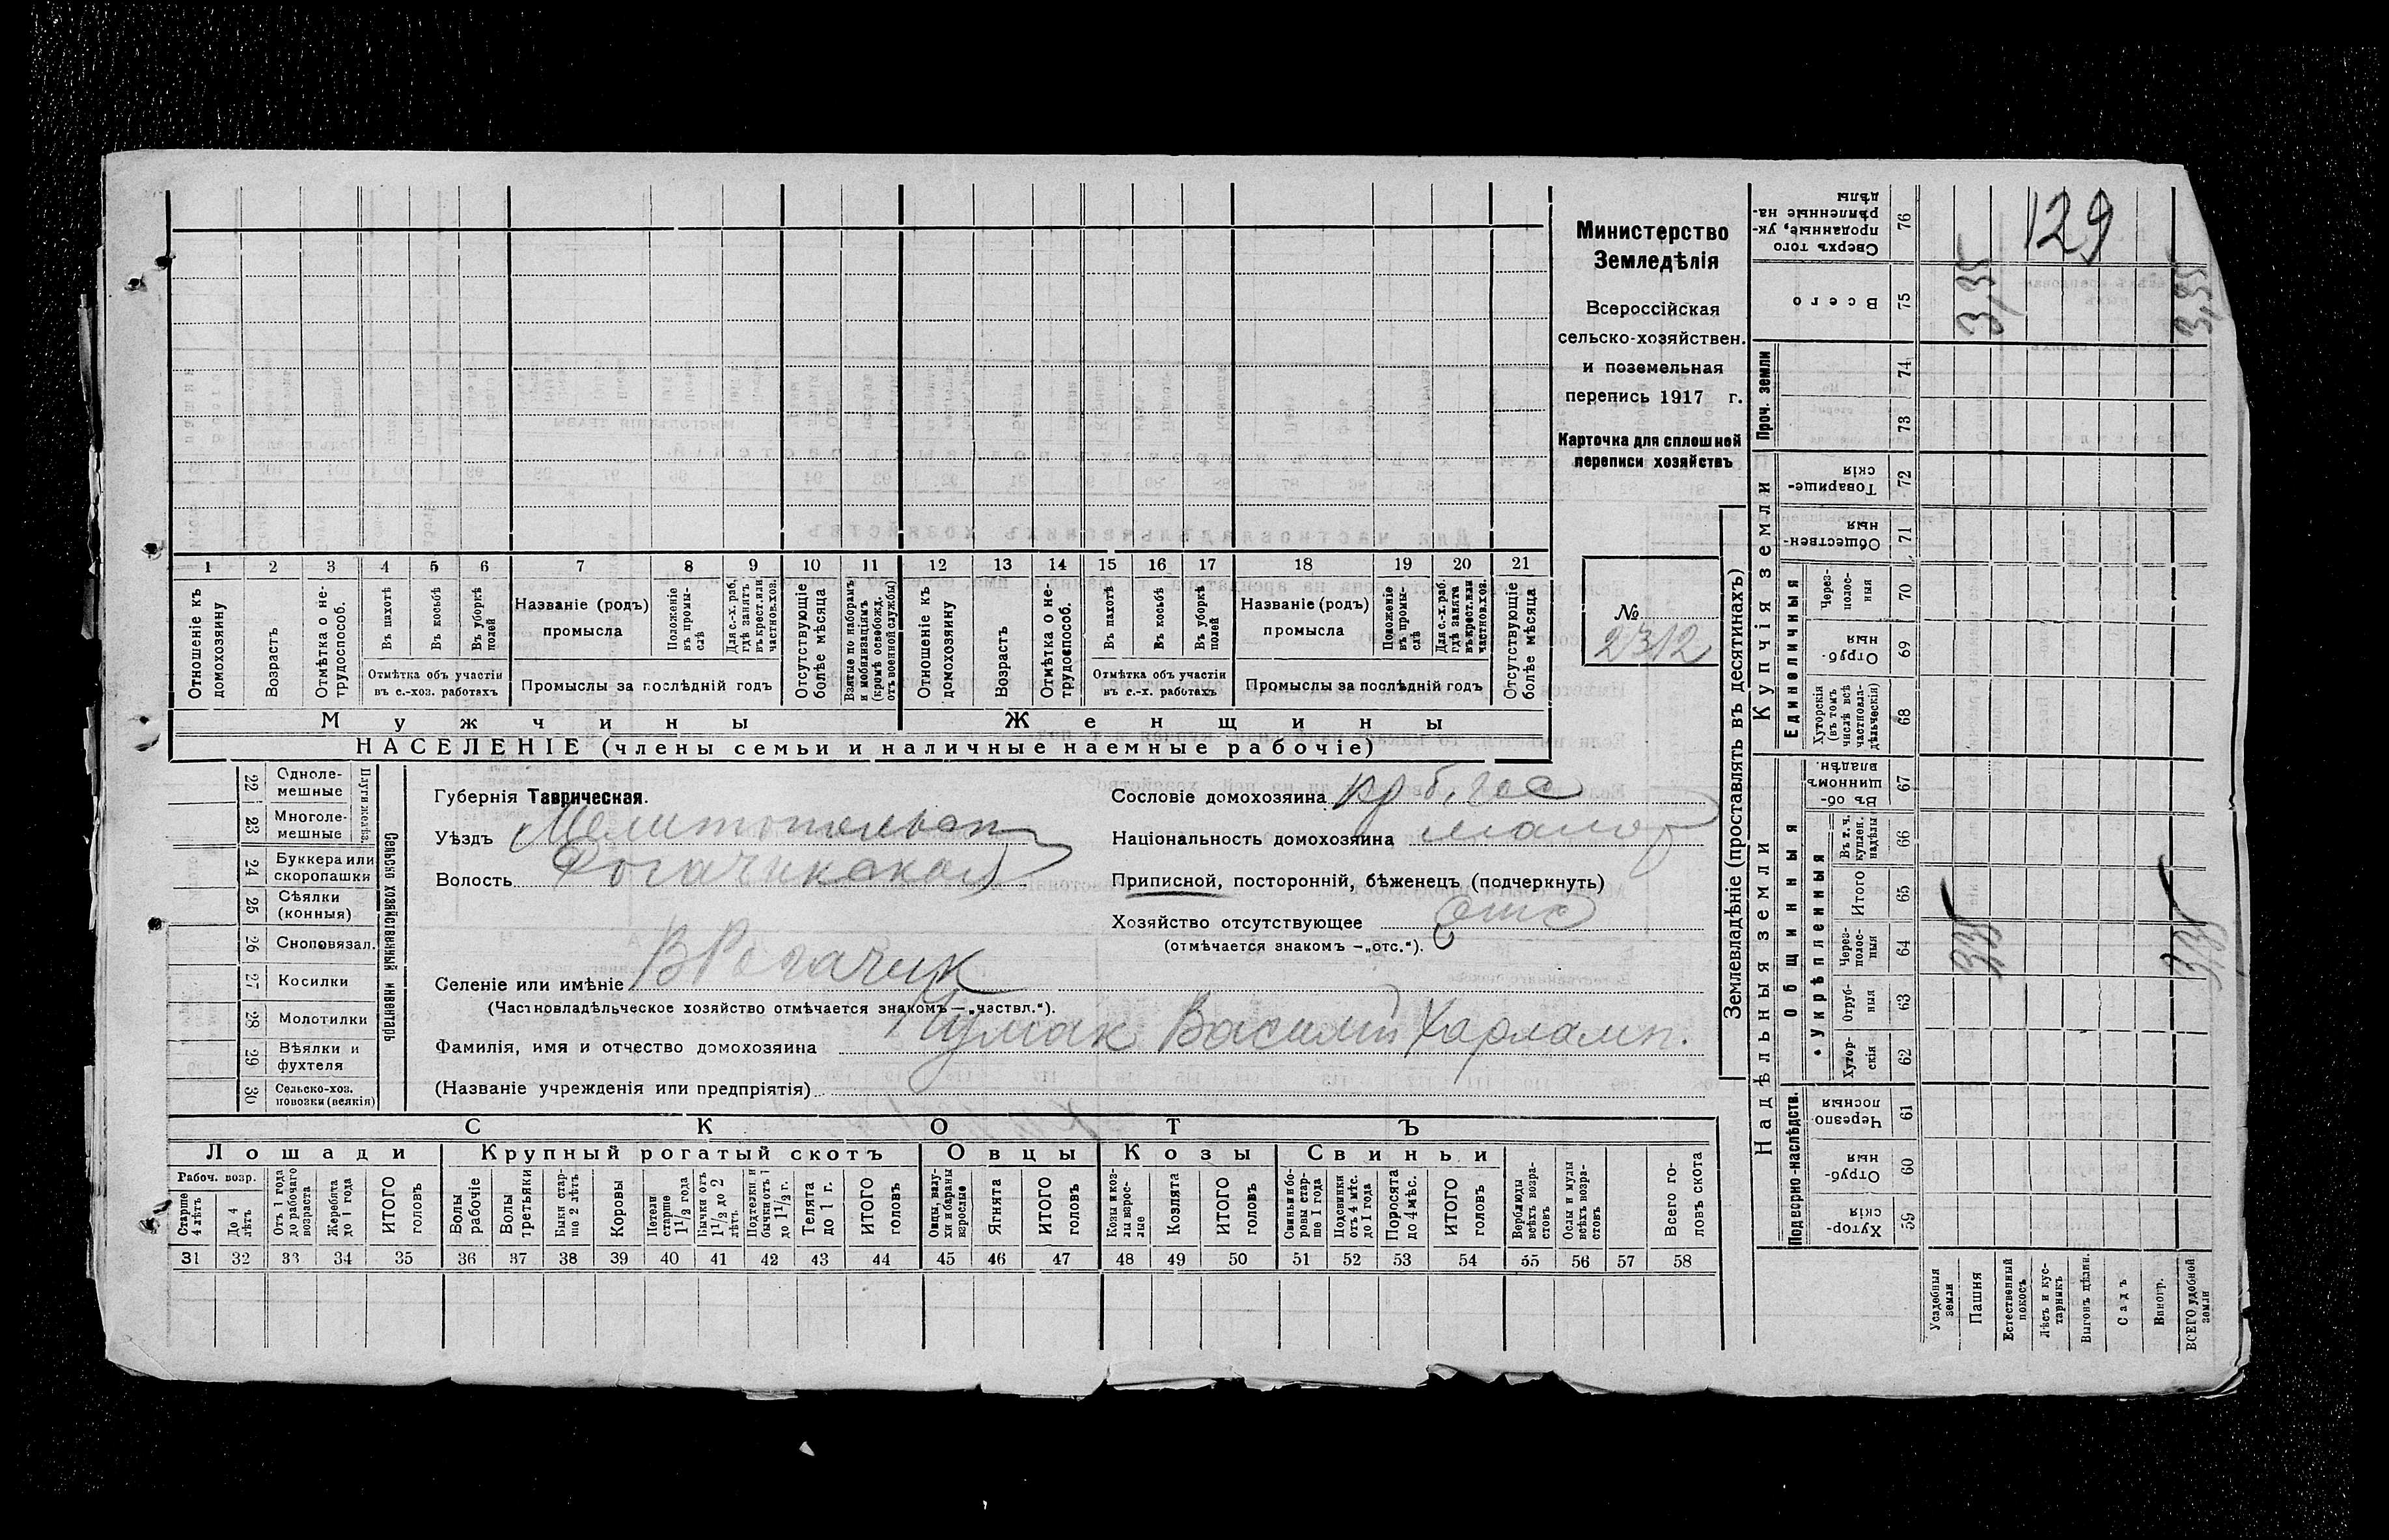 129
Министерство
Земледѣлія
Всероссійская
сельско-хозяйствен.
и поземельная
перепись 1917 г.
Карточка для сплошной
переписи хозяйствъ
№
2312
1 2 3 4 5 6 7 8 9 10 11 12 13 14 15 16 17 18 19 20 21
Отношеніе къ домохозяину
Возрастъ
Отмѣтка о не-трудоспособ.
Въ пахотѣ
Въ косьбѣ
Въ уборкѣ полей
Отмѣтка объ участіи въ с.-хоз. работахъ
Названіе (родъ) промысла
Положеніе въ промы-слѣ
Для с.-х. раб. гдѣ занятъ въ крест. или частнов. хоз.
Промыслы за послѣдній годъ
Отсутствующіе болѣе мѣсяца
Взятые по наборамъ и мобилизаціямъ (кромѣ освобожд. отъ военной службы)
Отношеніе къ домохозяину
Возрастъ
Отмѣтка о не-трудоспособ.
Въ пахотѣ
Въ косьбѣ
Въ уборкѣ полей
Отмѣтка объ участіи въ с.-х. работахъ
Названіе (родъ) промысла
Положеніе въ промы-слѣ
Для с.-х. раб. гдѣ занята въ крест. или частнов. хоз.
Промыслы за послѣдній годъ
Отсутствующіе болѣе мѣсяца
Мужчины Женщины
НАСЕЛЕНІЕ (члены семьи и наличные наемные рабочіе)
Сельско хозяйственный инвентарь
Плуги желѣз.
22 Одноле-мешные
23 Многоле-мешные
24 Буккера или скоропашки
25 Сѣялки (конныя)
26 Сноповязал.
27 Косилки
28 Молотилки
29 Вѣялки и фухтеля
30 Сельско-хоз. повозки (всякія)
Губернія Таврическая.
Уѣздъ Мелитопольск
Волость Рогачикская
Селеніе или имѣніе В Рогачик
(Частновладѣльческое хозяйство отмѣчается знакомъ—„частвл.“).
Фамилія, имя и отчество домохозяина Чумак Василий Харламп.
(Названіе учрежденія или предпріятія)
Сословіе домохозяина
Національность домохозяина малор
Приписной, посторонній, бѣженецъ (подчеркнуть)
Хозяйство отсутствующее отс
(отмѣчается знакомъ —„отс.“).
СКОТЪ
Лошади Крупный рогатый скотъ Овцы Козы Свиньи
Рабоч. возр.
Старше 4 лѣтъ
До 4 лѣтъ
Отъ 1 года до рабочаго возраста
Жеребята до 1 года
ИТОГО головъ
Волы рабочіе
Волы третьяки
Быки стар-ше 2 лѣтъ
Коровы
Нетели старше 1½ года
Бычки отъ 1½ до 2 лѣтъ
Подтелки и бычки отъ 1 до 1½ г.
Телята до 1 г.
ИТОГО головъ
Овцы, валу-хи и бараны взрослые
Ягнята
ИТОГО головъ
Козы и коз-лы взрос-лые
Козлята
ИТОГО головъ
Свиньи и бо-ровы стар-ше 1 года
Подсвинки отъ 4 мѣс. до 1 года
Поросята до 4 мѣс.
ИТОГО головъ
Верблюды всѣхъ возра-стовъ
Ослы и мулы всѣхъ возра-стовъ
Всего го-ловъ скота
31 32 33 34 35 36 37 38 39 40 41 42 43 44 45 46 47 48 49 50 51 52 53 54 55 56 57 58
Землевладѣніе (проставлять въ десятинахъ)
Надѣльныя земли
Купчія земли
Подворно-наслѣдств.
Общинныя
Укрѣпленныя
Единоличныя
Проч. земли
Хутор-скія 59
Отруб-ныя 60
Черезпо лосныя 61
Хутор-скія 62
Отруб-ныя 63
Через-полос-ныя 64
Итого 65
Въ т. ч. куплен. надѣлы 66
Въ об-щинномъ владѣн. 67
Хуторскія (въ томъ числѣ всѣ частновла-дѣльческія) 68
Отруб-ныя 69
Через-полос-ныя 70
Обществен-ныя 71
Товарище-скія 72
73
74
Всего 75
Сверхъ того проданные, ук-рѣпленные на-дѣлы 76
Усадебныя земли
Пашня
Естественный покосъ
Лѣсъ и кус-тарникъ
Выгонъ цѣлин.
Садъ
Виногр.
ВСЕГО удобной земли
3,35
3,35